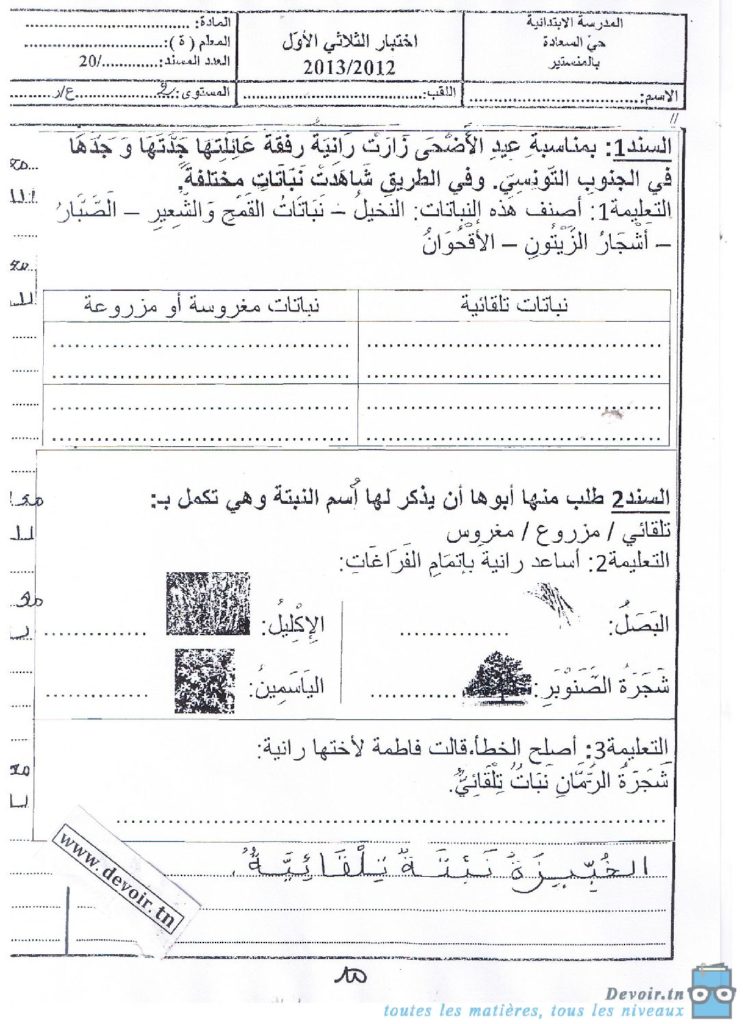 المدرسة الابتدانية
حيّ السعادة
بالمنستير
اختبار الثلاثي الأوّل
2013/2012
المادة:
المعلم ( ة ):
العدد المسند:............/20
الاسم:
اللقب:
المستوى: 2 ع/ر
السند1: بمناسبةِ عيدِ الأضْحَى زَارَتْ رَانِيَة رفقة عَائِلتِهَا جَدَّتَهَا وَ جَدَّهَا
في الجنوبِ التّونسِيّ. وفي الطريقِ شَاهَدَتْ نَبَاتَاتٍ مختلفةً.
التعليمة1: أصنف هذه النباتات: النخيلُ – نَبَاتَاتُ القَمْحِ وَالشَّعِيرِ – الصَّبَّارُ
– أشْجَارُ الزَّيْتُونِ – الأقْحُوَانُ
نباتات تلقائية
نباتات مغروسة أو مزروعة
السند2 طلب منها أبوها أن يذكر لها اُسم النبتة وهي تكمل بـ:
تلقائي / مزروع / مغروس
التعليمة2: أساعد رانية بإتمَامِ الفَرَاغَاتِ:
البَصَلُ: ..............
الإكْلِيلُ: ..............
شَجَرَةُ الصَّنَوْبَرِ: ..............
اليَاسَمِينُ: ..............
التعليمة3: أصلح الخطأ،قالت فاطمة لأختها رانية:
شَجَرَةُ الرُّمَّانِ نَبَاتٌ تِلْقَائِيٌّ.
الخُبِّيزَةُ نَبْتَةٌ تِلْقَائِيَّةٌ.
www.devoir.tn
Devoir.tn
toutes les matières, tous les niveaux